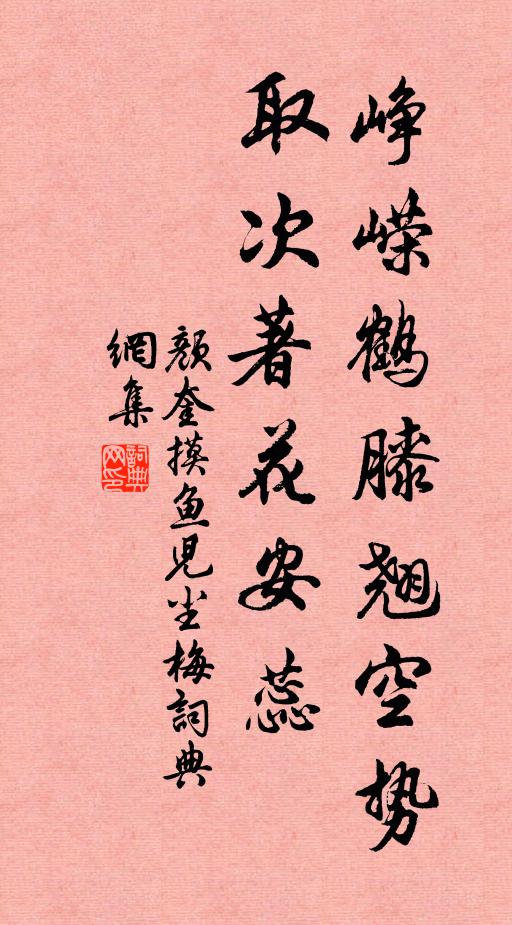 峥嵘鹤膝翘空势
取次著花安蕊
颜奎摸鱼児尘梅詞典
網集
詞典网印